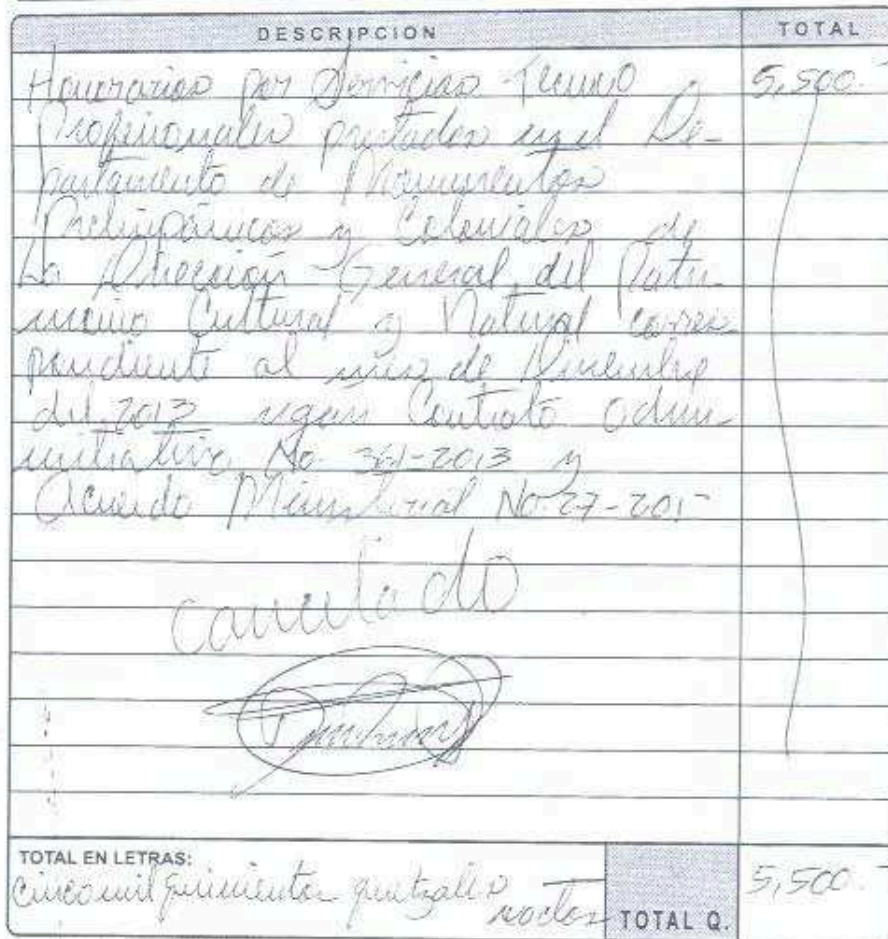 DESCRIPCION TOTAL
Honorarios por Servicios Tecnico 5,500.-
Profesionales prestados en el De-
partamento de Monumentos
Prehispánicos y Coloniales de
La Dirección General del Patri
monio Cultural y Natural corres
pondiente al mes de Diciembre
del 2013 segun Contrato Admi
nistrativo No 361-2013 y
Acuerdo Ministerial No. 27-201
cancelado
TOTAL EN LETRAS:
cinco mil quinientos quetzales 5,500.-
exactos TOTAL Q.